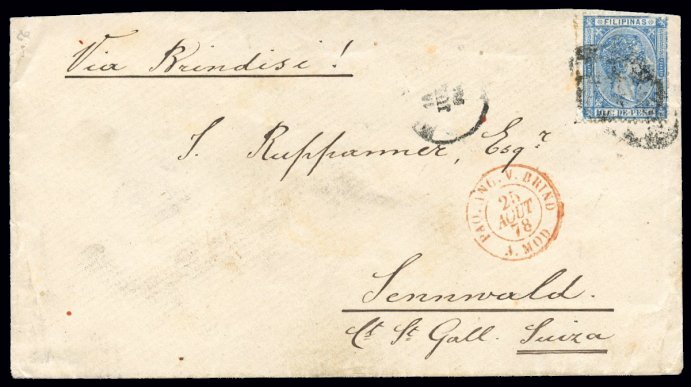 FILIPINAS
Via Brindisi!
MILS DE PESO
JUL
J. Ruppanner, Esqr
PAQ. ANG. V. BRIND
25
AOUT
78
A. MOD
Sennwald.
Ct. St. Gall. Suiza